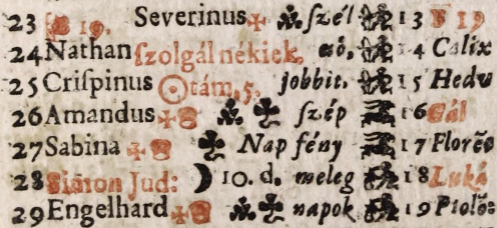 23 19. Severinus szél 13 F 19
24 Nathan szolgál nékiek, eő, 14 Calix
25 Criſpinus ☉tám, 5. jobbit. 15 Hedv
26 Amandus ſzép 16 Gál
27 Sabina Nap fény 17 Florẽõ
28 Simon Jud: ☽ 10. d. meleg 18 Luká
29 Engelhard napok 19 Ptolõ: